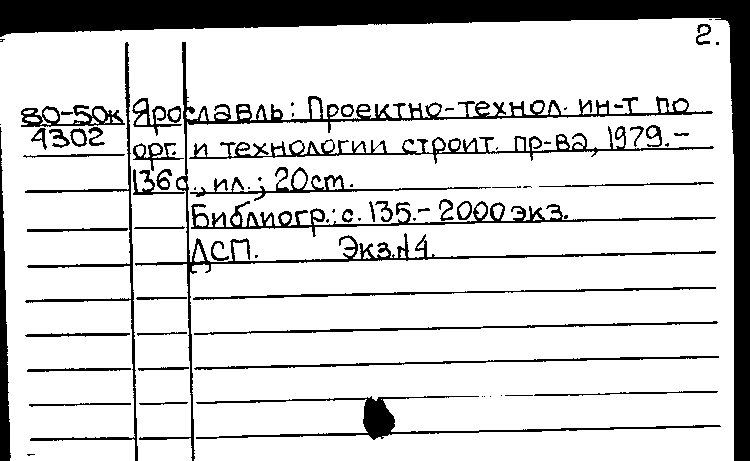 2.
80-50к Ярославль: Проектно-технол. ин-т по
4302 орг. и технологии строит. пр-ва, 1979.-
136с., ил.; 20cm.
Библиогр.: с. 135.- 2000 экз.
ДСП. Экз.№4.